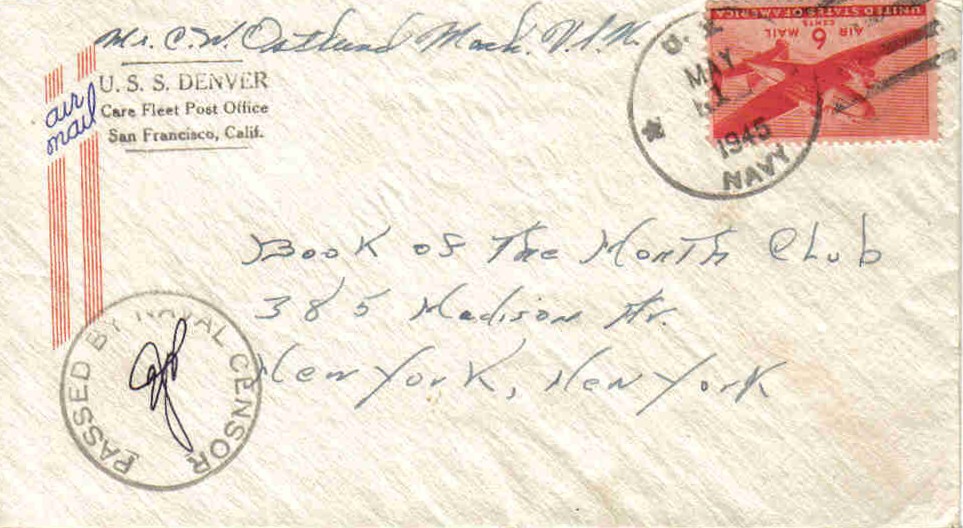 Mr. C. W. Ostlund Mach. U.S.N.
U. S. S. DENVER
Care Fleet Post Office
San Francisco, Calif.
air
mail
UNITED STATES OF AMERICA
6 CENTS
AIR MAIL
U.S.
MAY
1945
NAVY
Book of The Month Club
385 Madison Av.
New York, New York
PASSED BY NAVAL CENSOR